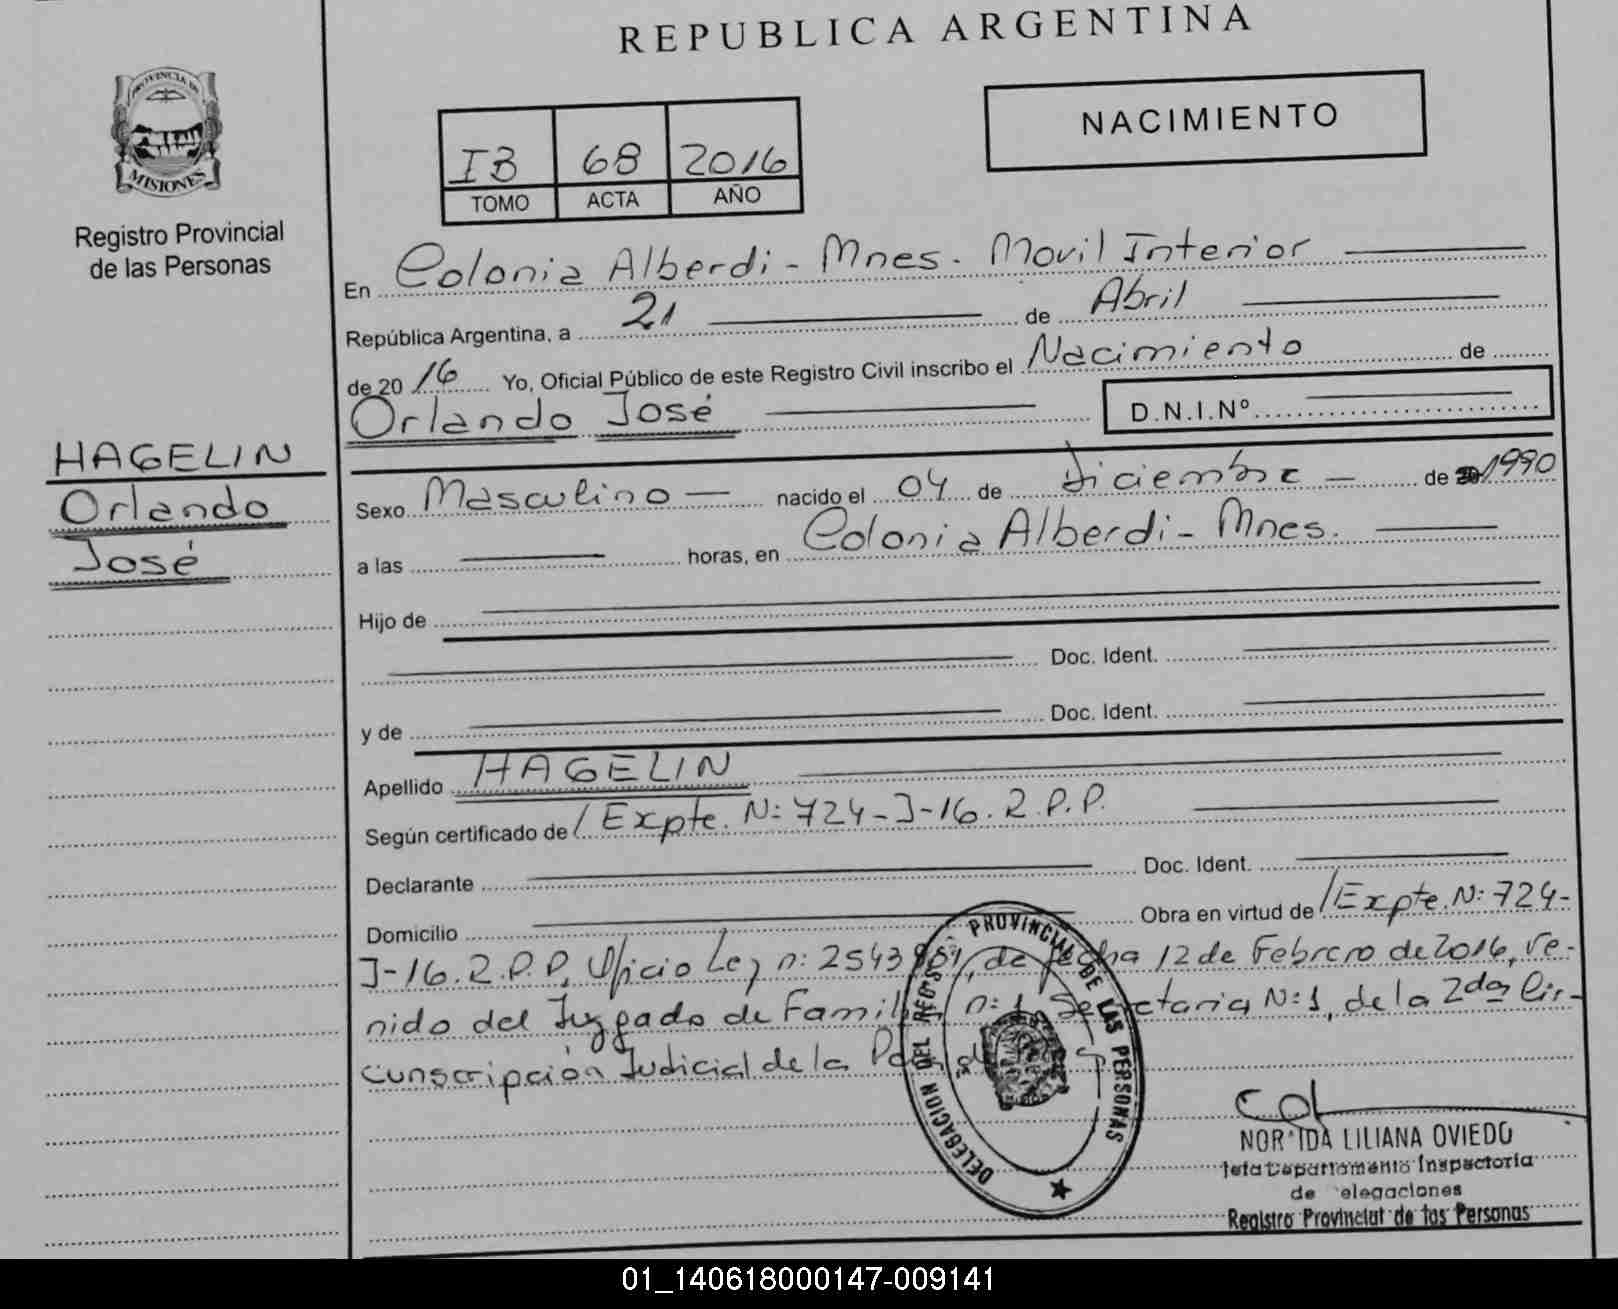 REPUBLICA ARGENTINA
PROVINCIA DE
MISIONES
Registro Provincial
de las Personas
NACIMIENTO
IB 68 2016
TOMO ACTA AÑO
En Colonia Alberdi - Mnes. Movil Interior
República Argentina, a 21 de Abril
de 20 16 Yo, Oficial Público de este Registro Civil inscribo el Nacimiento de
Orlando José D.N.I.Nº
HAGELIN
Orlando
José
Sexo Masculino nacido el 04 de diciembre de 1990
a las horas, en Colonia Alberdi - Mnes.
Hijo de
Doc. Ident.
y de Doc. Ident.
Apellido HAGELIN
Según certificado de/ Expte. N: 724-J-16.R.P.P.
Declarante Doc. Ident.
Domicilio Obra en virtud de/ Expte. N: 724-
J-16.R.P.P, Oficio Ley n: de fecha 12 de Febrero de 2016, ve-
nido del Juzgado de Familia n: 1, Secretaria N:1, de la 2da Cir-
cunscripción Judicial de la
DELEGACION DEL REG. PROVINCIAL DE LAS PERSONAS
LILIANA OVIEDO
Jefa Departamento Inspectoria
de elegaciones
Registro Provincial de las Personas
01_140618000147-009141